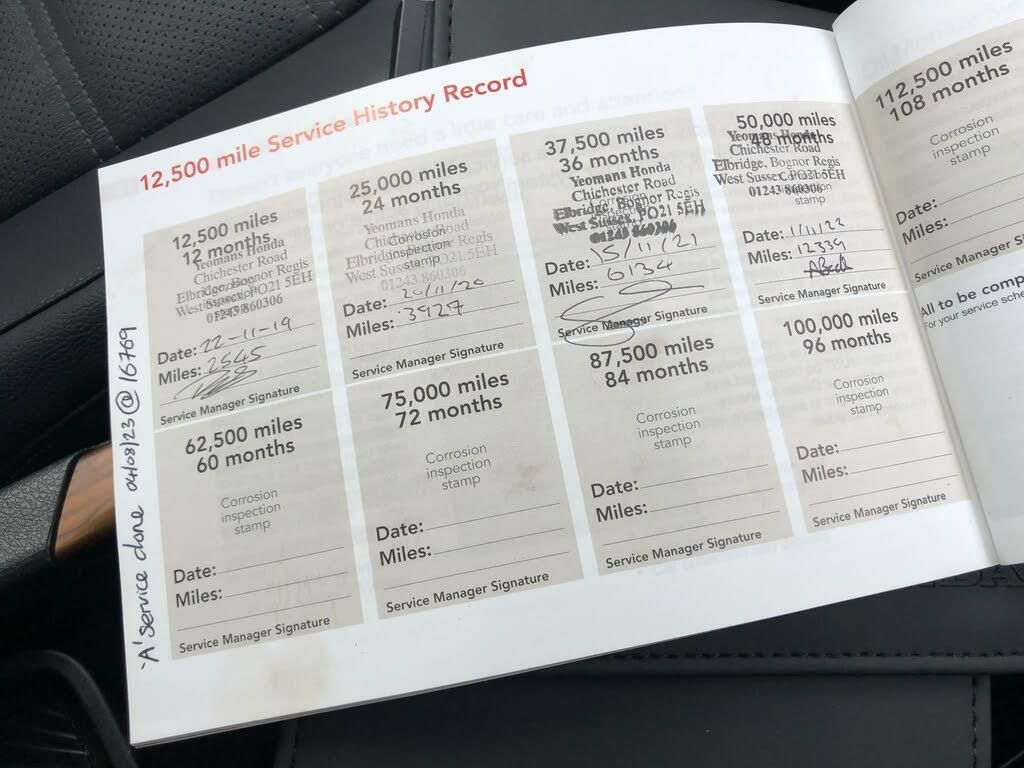 12,500 mile Service History Record
12,500 miles
12 months
Yeomans Honda
Chichester Road
Elbridge, Bognor Regis
West Sussex, PO21 5EH
01243 860306
Date: 22-11-19
Miles: 2545
Service Manager Signature
25,000 miles
24 months
Yeomans Honda
Chichester Road
Corrosion
Elbridge, Bognor Regis
inspection
West Sussex, PO21 5EH
stamp
01243 860306
Date: 20/11/20
Miles: 3927
Service Manager Signature
37,500 miles
36 months
Yeomans Honda
Chichester Road
Elbridge, Bognor Regis
West Sussex, PO21 5EH
01243 860306
Date: 15/11/21
Miles: 6134
Service Manager Signature
50,000 miles
48 months
Yeomans Honda
Chichester Road
Elbridge, Bognor Regis
West Sussex, PO21 5EH
01243 860306
stamp
Date: 1/11/22
Miles: 12339
Service Manager Signature
62,500 miles
60 months
Corrosion
inspection
stamp
Date:
Miles:
Service Manager Signature
75,000 miles
72 months
Corrosion
inspection
stamp
Date:
Miles:
Service Manager Signature
87,500 miles
84 months
Corrosion
inspection
stamp
Date:
Miles:
Service Manager Signature
100,000 miles
96 months
Corrosion
inspection
stamp
Date:
Miles:
Service Manager Signature
'A' service done 04/08/23 @ 16769
112,500 miles
108 months
Corrosion
inspection
stamp
Date:
Miles:
Service Manager
All to be
for your service